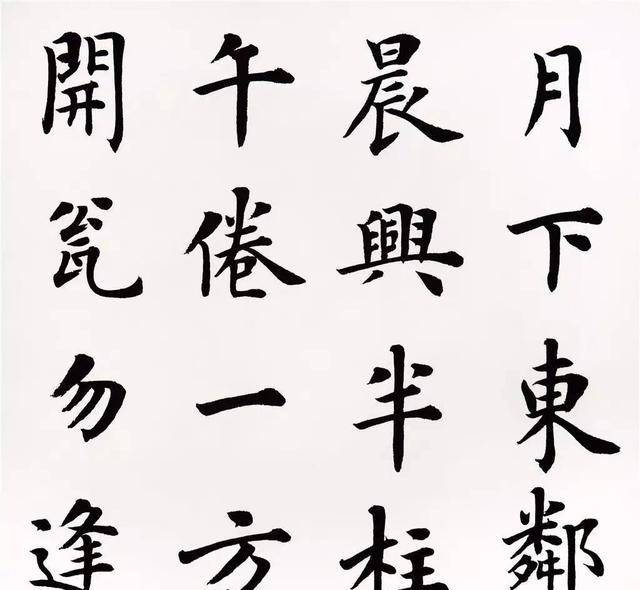 月下東鄰
晨興半柱
午倦一方
開瓮勿逢